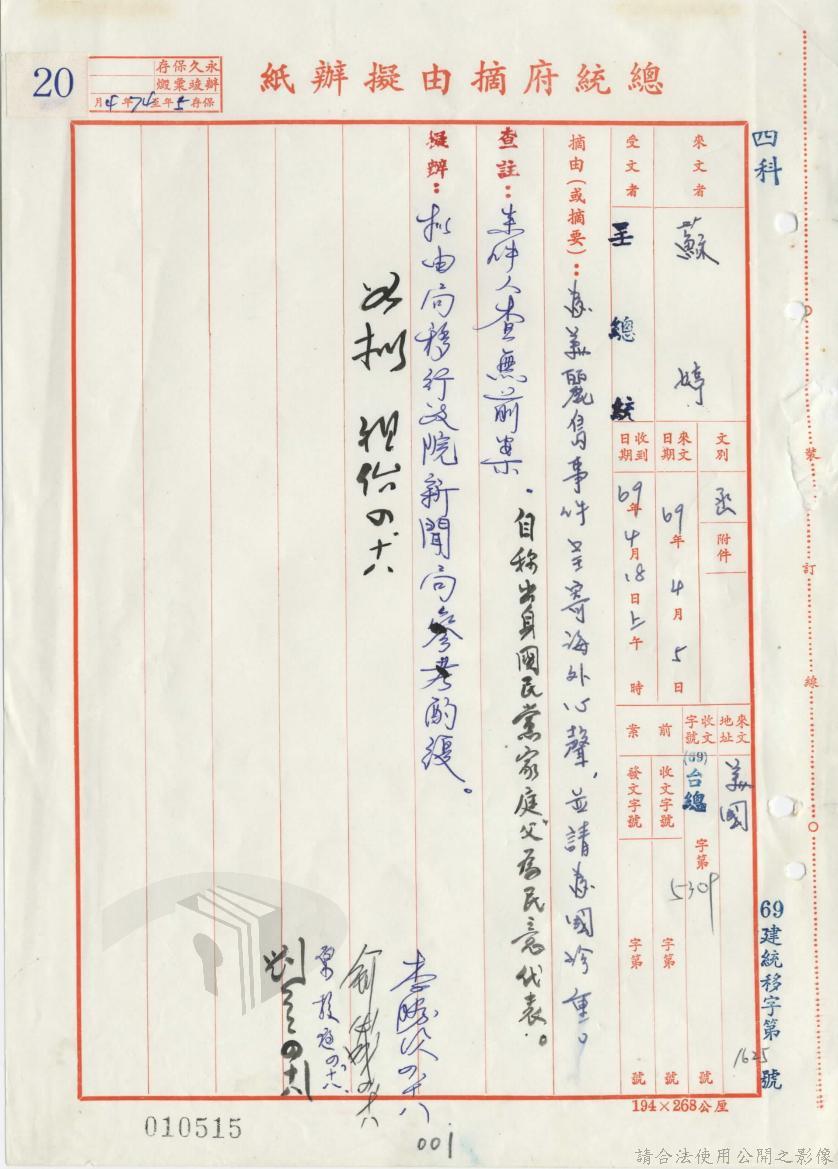 總統府摘由擬辦紙
20
永久保存
辦竣稟燬
保存5年至74年4月
四科
來文者
蘇婷
文別
函
附件
來文地址
美國
受文者
呈總統
來文日期
69年4月5日
收到日期
69年4月18日上午 時
收文字號
(69)台總 字第5309號
前案
收文字號 字第 號
發文字號 字第 號
摘由(或摘要):為美麗島事件呈寄海外心聲,並請為國珍重。
查註:來件人查無前案。自称出身國民黨家庭父為民意代表。
擬辦:擬由局移行政院新聞局參考酌復。
如擬
四十八
69建統移字第1625號
194×268公厘
裝
訂
線
010515
001
請合法使用公開之影像